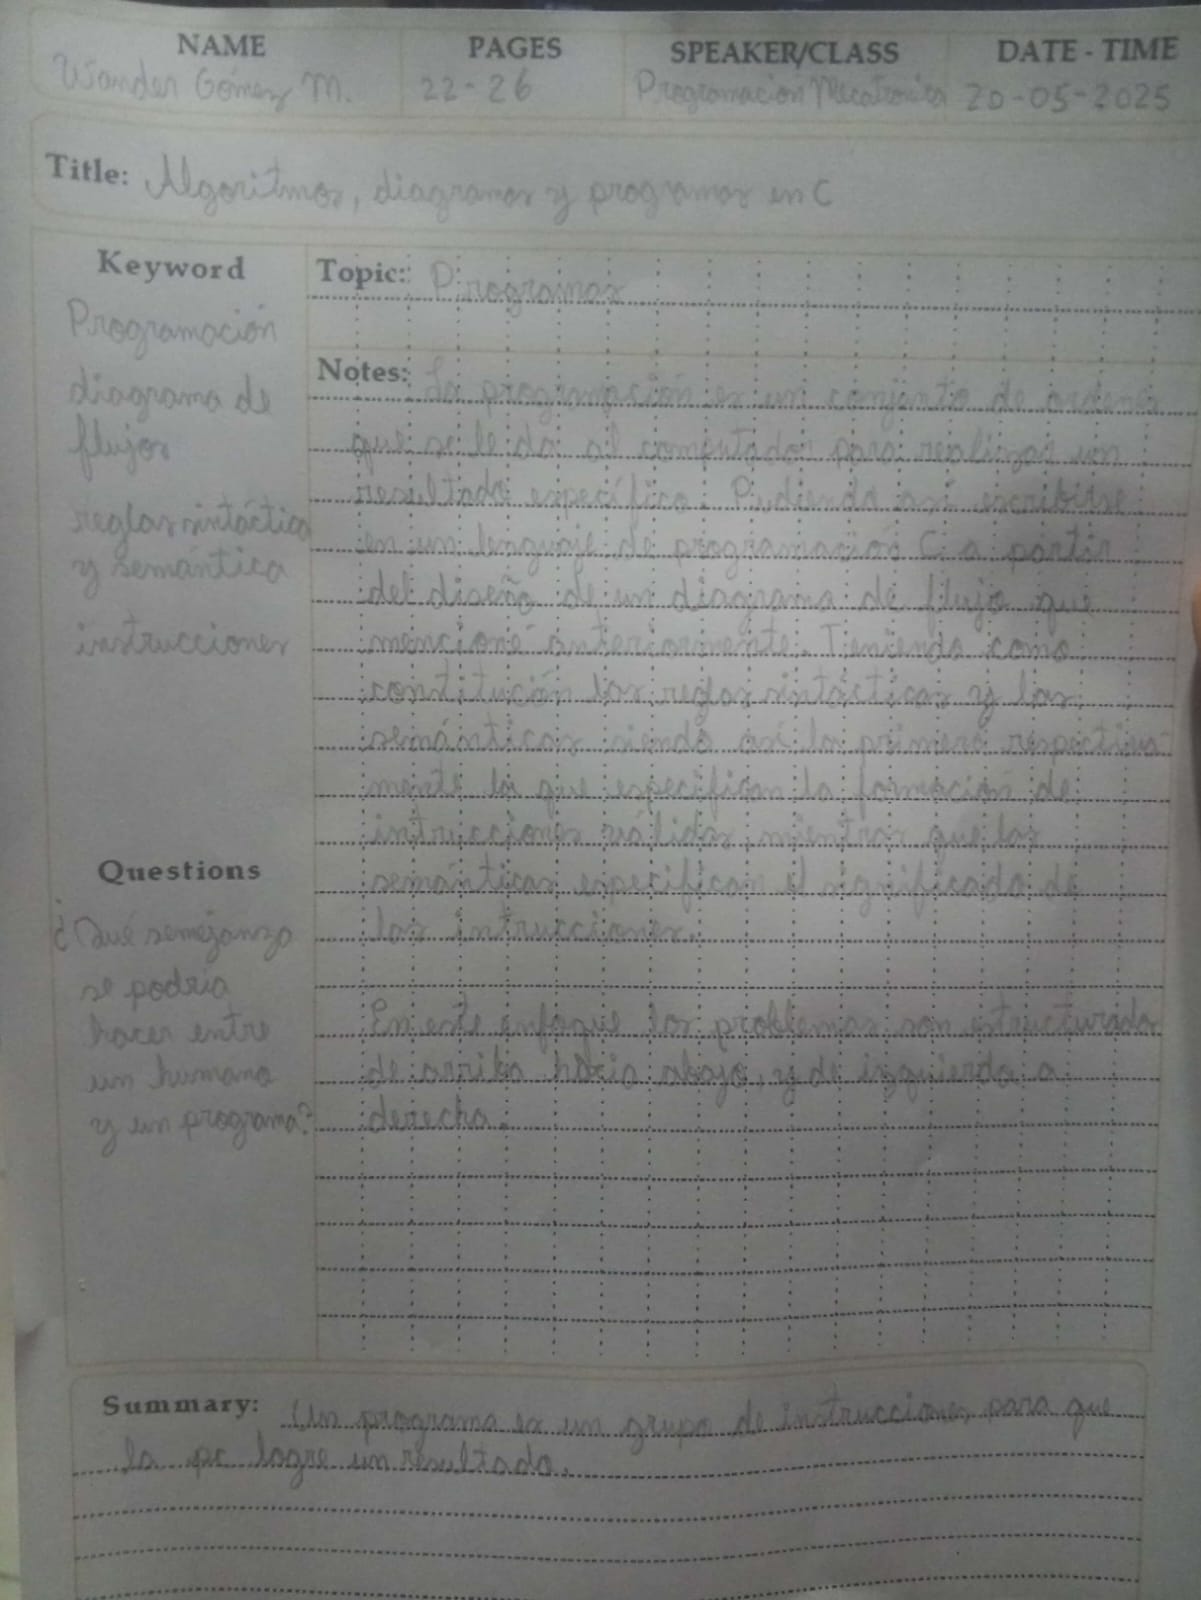 NAME PAGES SPEAKER/CLASS DATE - TIME
Wander Gómez M. 22-26 Programación Mecatrónica 20-05-2025
Title: Algoritmos, diagramas y programas en C
Keyword
Programación
diagrama de
flujos
reglas sintáctica
y semántica
instrucciones
Questions
¿Qué semejanza
se podría
hacer entre
un humano
y un programa?
Topic: Programas
Notes: La programación es un conjunto de ordenes
que se le da al computador para realizar un
resultado específico. Pudiendo así escribirse
en un lenguaje de programación C a partir
del diseño de un diagrama de flujo que
mencioné anteriormente. Teniendo como
constitución las reglas sintácticas y las
semánticas siendo así la primera respectiva-
mente la que especifican la formación de
intrucciones válidas mientras que las
semánticas especifican el significado de
las intrucciones.
En este enfoque los problemas son estructurados
de arriba hacia abajo, y de izquierda a
derecha.
Summary: Un programa es un grupo de instrucciones para que
la pc logre un resultado.